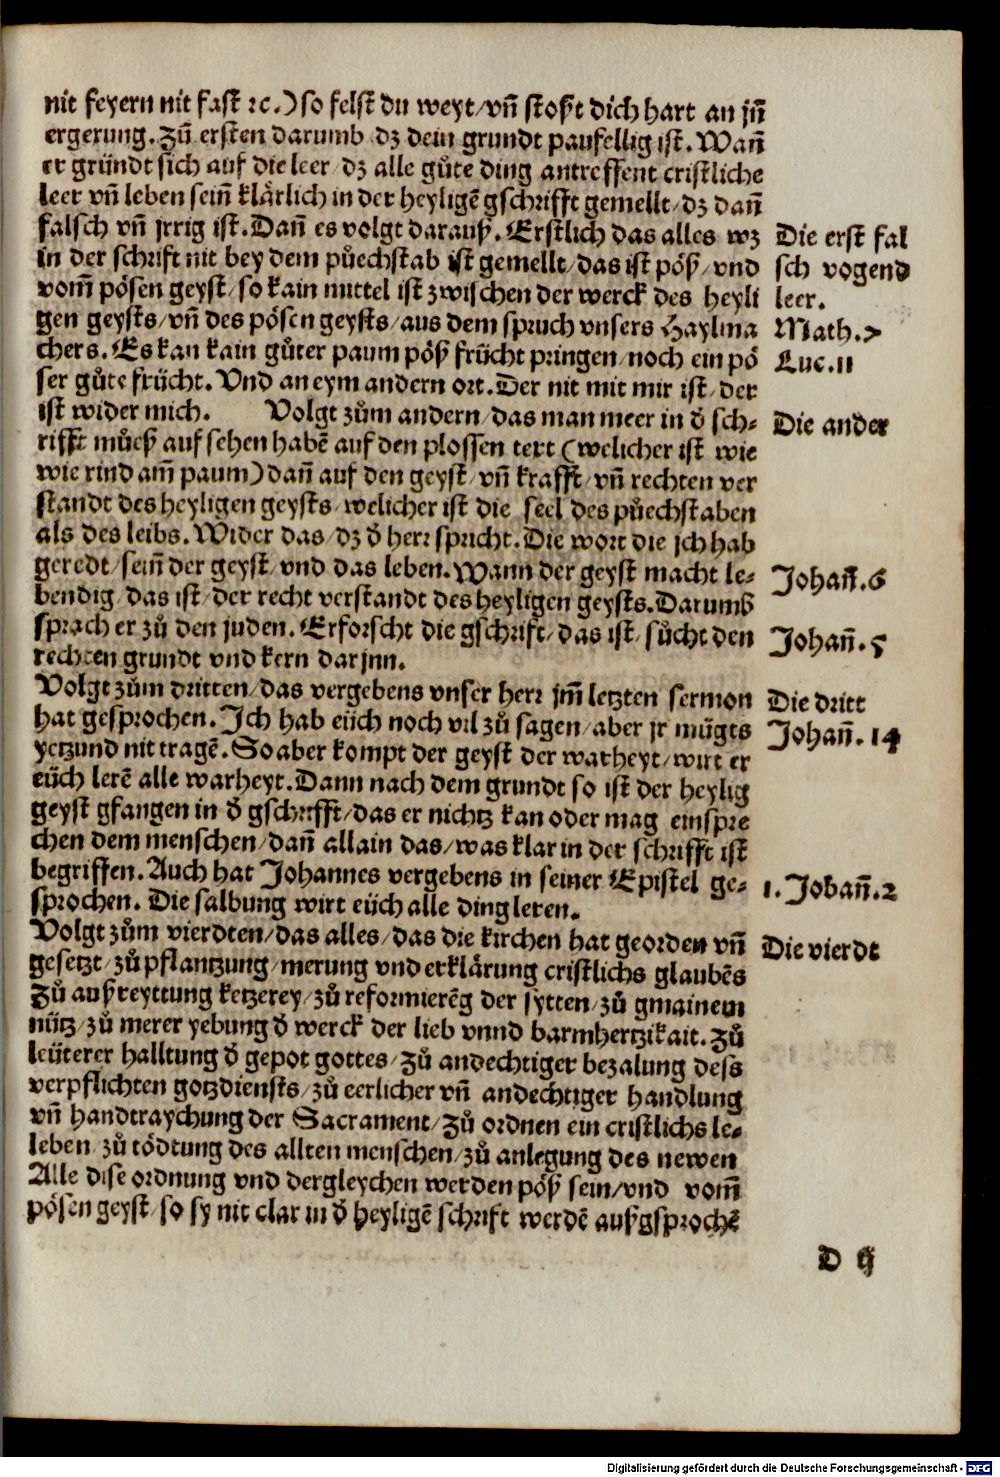 nit feyern nit fast ꝛc.) so felst du weyt/ vñ stost dich hart an jñ
ergerung. Zů ersten darumb dz dein grundt paufellig ist. Wañ
er gründt sich auf die leer/ dz alle gůte ding antreffent cristliche
leer vñ leben seiñ klärlich in der heyligē gschrifft gemellt/ dz dañ
falsch vñ jrrig ist. Dañ es volgt darauß. Erstlich das alles wz
in der schrift nit bey dem půechstab ist gemellt/ das ist pöß/ vnd
vom̃ pösen geyst/ so kain mittel ist zwischen der werck des heyli
gen geysts/ vñ des pösen geysts/ aus dem spruch vnsers Haylma
chers. Es kan kain gůter paum pöß frücht pringen/ noch ein pö
ser gůte frücht. Vnd an eym andern ort. Der nit mit mir ist/ der
ist wider mich. Volgt zům andern/ das man meer in d̕ sch-
rifft můeß auf sehen habē auf den plossen text (welicher ist wie
wie rind am̃ paum) dañ auf den geyst/ vñ krafft/ vñ rechten ver
standt des heyligen geysts/ welicher ist die seel des půechstaben
als des leibs. Wider das/ dz d̕ herr spricht. Die wort die jch hab
geredt/ seiñ der geyst/ vnd das leben. Wann der geyst macht le-
bendig/ das ist/ der recht verstandt des heyligen geysts. Darumb
sprach er zů den juden. Erforscht die gschrift/ das ist/ sůcht den
rechten grundt vnd kern darjnn.
Volgt zům dritten/ das vergebens vnser herr jm̃ letzten sermon
hat gesprochen. Ich hab eüch noch vil zů sagen/ aber jr mügts
yetzund nit tragē. So aber kompt der geyst der warheyt/ wirt er
eüch lerē alle warheyt. Dann nach dem grundt so ist der heylig
geyst gfangen in d̕ gschrifft/ das er nichtz kan oder mag einspre
chen dem menschen/ dañ allain das/ was klar in der schrifft ist
begriffen. Auch hat Johannes vergebens in seiner Epistel ge-
sprochen. Die salbung wirt eüch alle ding leren.
Volgt zům vierdten/ das alles/ das die kirchen hat georden vñ
gesetzt/ zů pflantzung/ merung vnd erklärung cristlichs glaubēs
Zů außreyttung ketzerey/ zů reformierēg der sytten/ zů gmainem
nütz/ zů merer yebung d̕ werck der lieb vnnd barmhertzikait. Zů
leüterer halltung d̕ gepot gottes/ Zů andechtiger bezalung dess
verpflichten gotzdiensts/ zů eerlicher vñ andechtiger handlung
vñ handtraychung der Sacrament/ Zů ordnen ein cristlichs le-
leben/ zů tödtung des allten menschen/ zů anlegung des newen
Alle dise ordnung vnd dergleychen werden pöß sein/ vnd vom̃
pösen geyst/ so sy nit clar in d̕ heyligē schrift werdē außgsprochē
Die erst fal
sch vogend
leer.
Math. 7
Luc. 11
Die ander
Johañ. 6
Johañ. 5
Die dritt
Johañ. 14
1. Johañ. 2
Die vierdt
D ij
Digitalisierung gefördert durch die Deutsche Forschungsgemeinschaft - DFG